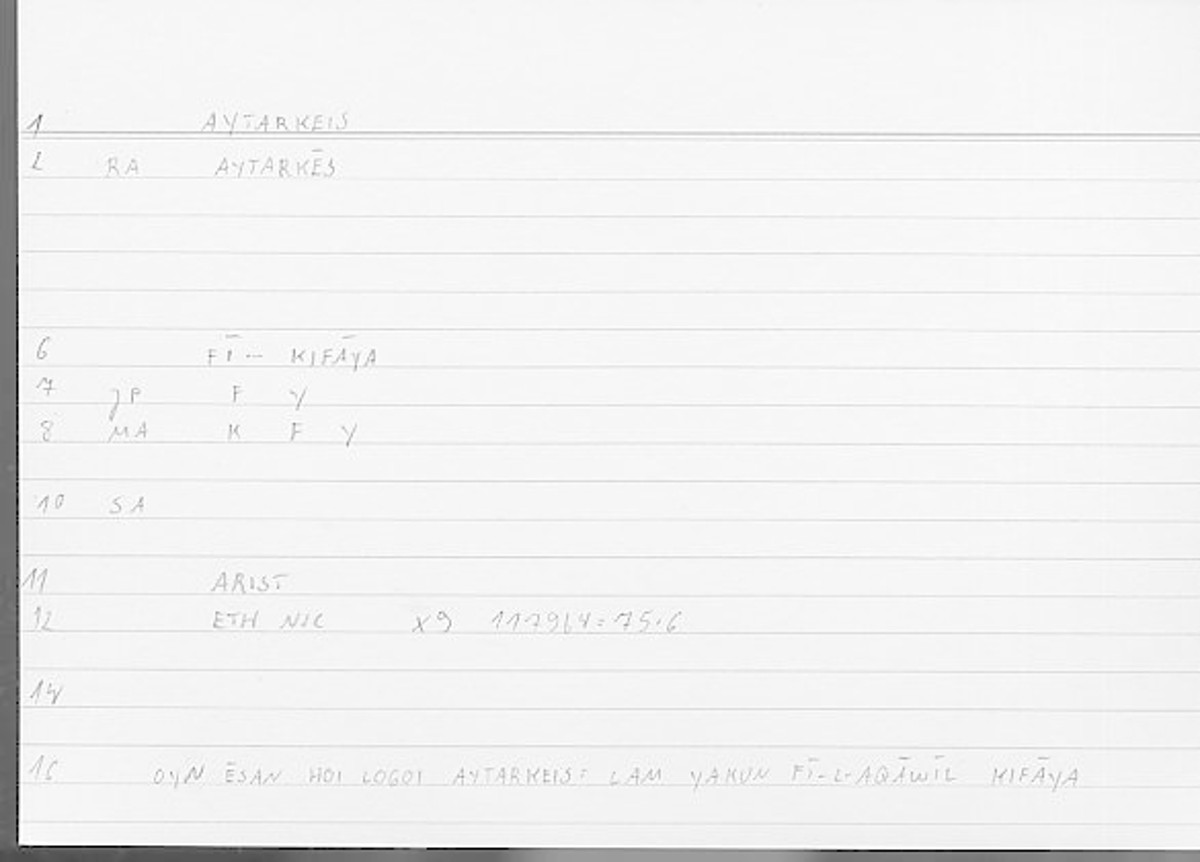 1 AYTARKEIS
2 RA AYTARKĒS
6 FĪ-- KIFĀYA
7 JP F Y
8 MA K F Y
10 SA
11 ARIST
12 ETH NIC X9 1179b4=75.6
14
16 OYN ĒSAN HOI LOGOI AYTARKEIS: LAM YAKUN FĪ-L-AQĀWĪL KIFĀYA